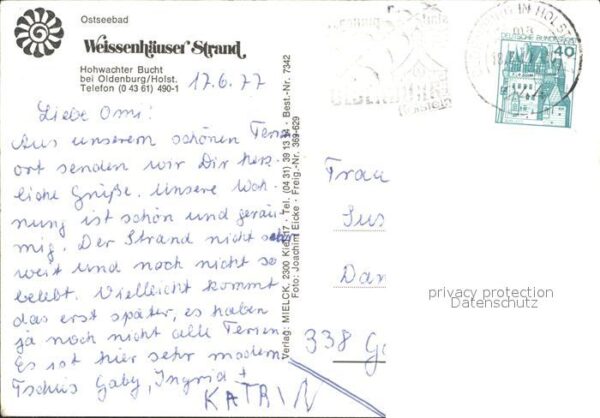 Ostseebad
Weissenhäuser Strand
Hohwachter Bucht
bei Oldenburg/Holst.
Telefon (0 43 61) 490-1
17.6.77
Liebe Omi!
Aus unserem schönen
ort senden wir Dir herz-
liche Grüße. Unsere Woh-
nung ist schön und geräu-
mig. Der Strand nicht
weit und noch nicht so
belebt. Vielleicht kommt
das erst später, es haben
ja noch nicht alle Ferien
Es ist hier sehr modern
Tschüs Gaby, Ingrid +
KATRIN
Verlag: MIELCK, 2300 Kiel 17 · Tel. (04 31) 39 13 · Best.-Nr. 7342
Foto: Joachim Eicke · Freig.-Nr. 369-629
IN HOLST
DEUTSCHE BUNDESPOST
40
Frau
Sus
Dan
338 Go
privacy protection
Datenschutz